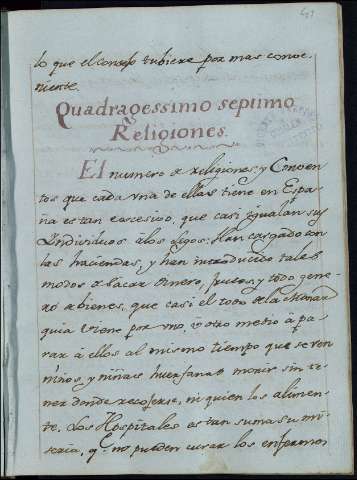 lo que el consejo tubiere por mas conve-
niente.
Quadragessimo septimo
Religiones.
El numero de religiones, y Conven
tos que cada vna de ellas tiene en Espa
ña es tan excesivo, que casi igualan sus
Individuos à los legos: Han cargado con
las haciendas, y han introducido tales
modos de sacar dinero, frutos, y todo gene
ro de bienes, que casi el todo de la Monar
quia viene por vno, ù otro medio à pa-
rar à ellos al mismo tiempo que se ven
niños, y niñas huerfanas morir sin te
ner donde recoserse, ni quien los alimen-
te. Los Hospitales es tan suma su mi
seria, q.e no pueden curar los enfermos